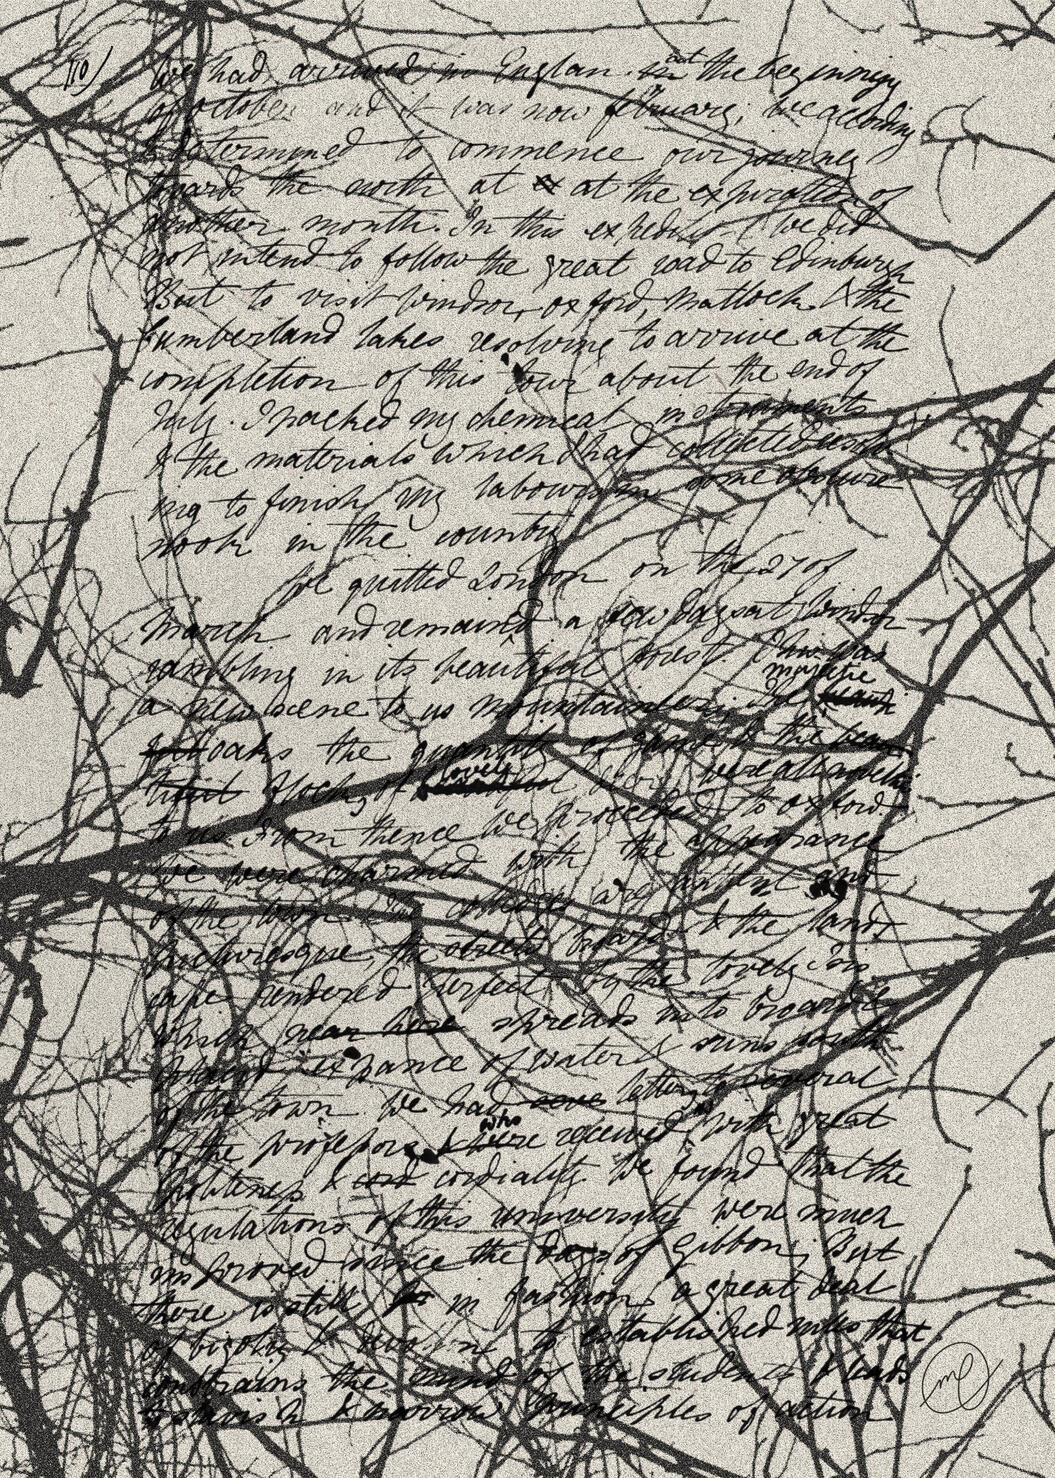 110)
We had arrived in Englan at the beginning
of october and it was now february; we accordingly
determined to commence our journey
towards the north at at the expiration of
another month. In this expedition we did
not intend to follow the great road to Edinburgh
But to visit windsor, oxford, Matlock & the
Cumberland lakes resolving to arrive at the
completion of this tour about the end of
July. I packed my chemical instruments
& the materials which I had collected
ing to finish my labours in some obscure
nook in the country
We quitted London on the 27 of
March and remained a few days at Windsor
rambling in its beautiful forest. This was
majestic
a new scene to us mountaineers; the
oaks the quantity of game & the
lovely
flocks of deer were all
to us. From thence we proceeded to oxford.
We were charmed with the appearance
of the town. The colleges are and
picturesque, the streets broad & the lands
cape rendered perfect by the lovely Isis
which near here spreads into broad &
expance of water & runs south
of the town We had letters to several
who
of the professors received with great
politeness & cord cordiality. We found that the
regulations of this university were much
improved since the days of Gibbon; But
there is still in fashion a great deal
of bigotry & devotion to established rules that
constrains the mind of the students & leads
to slavish & narrow principles of action